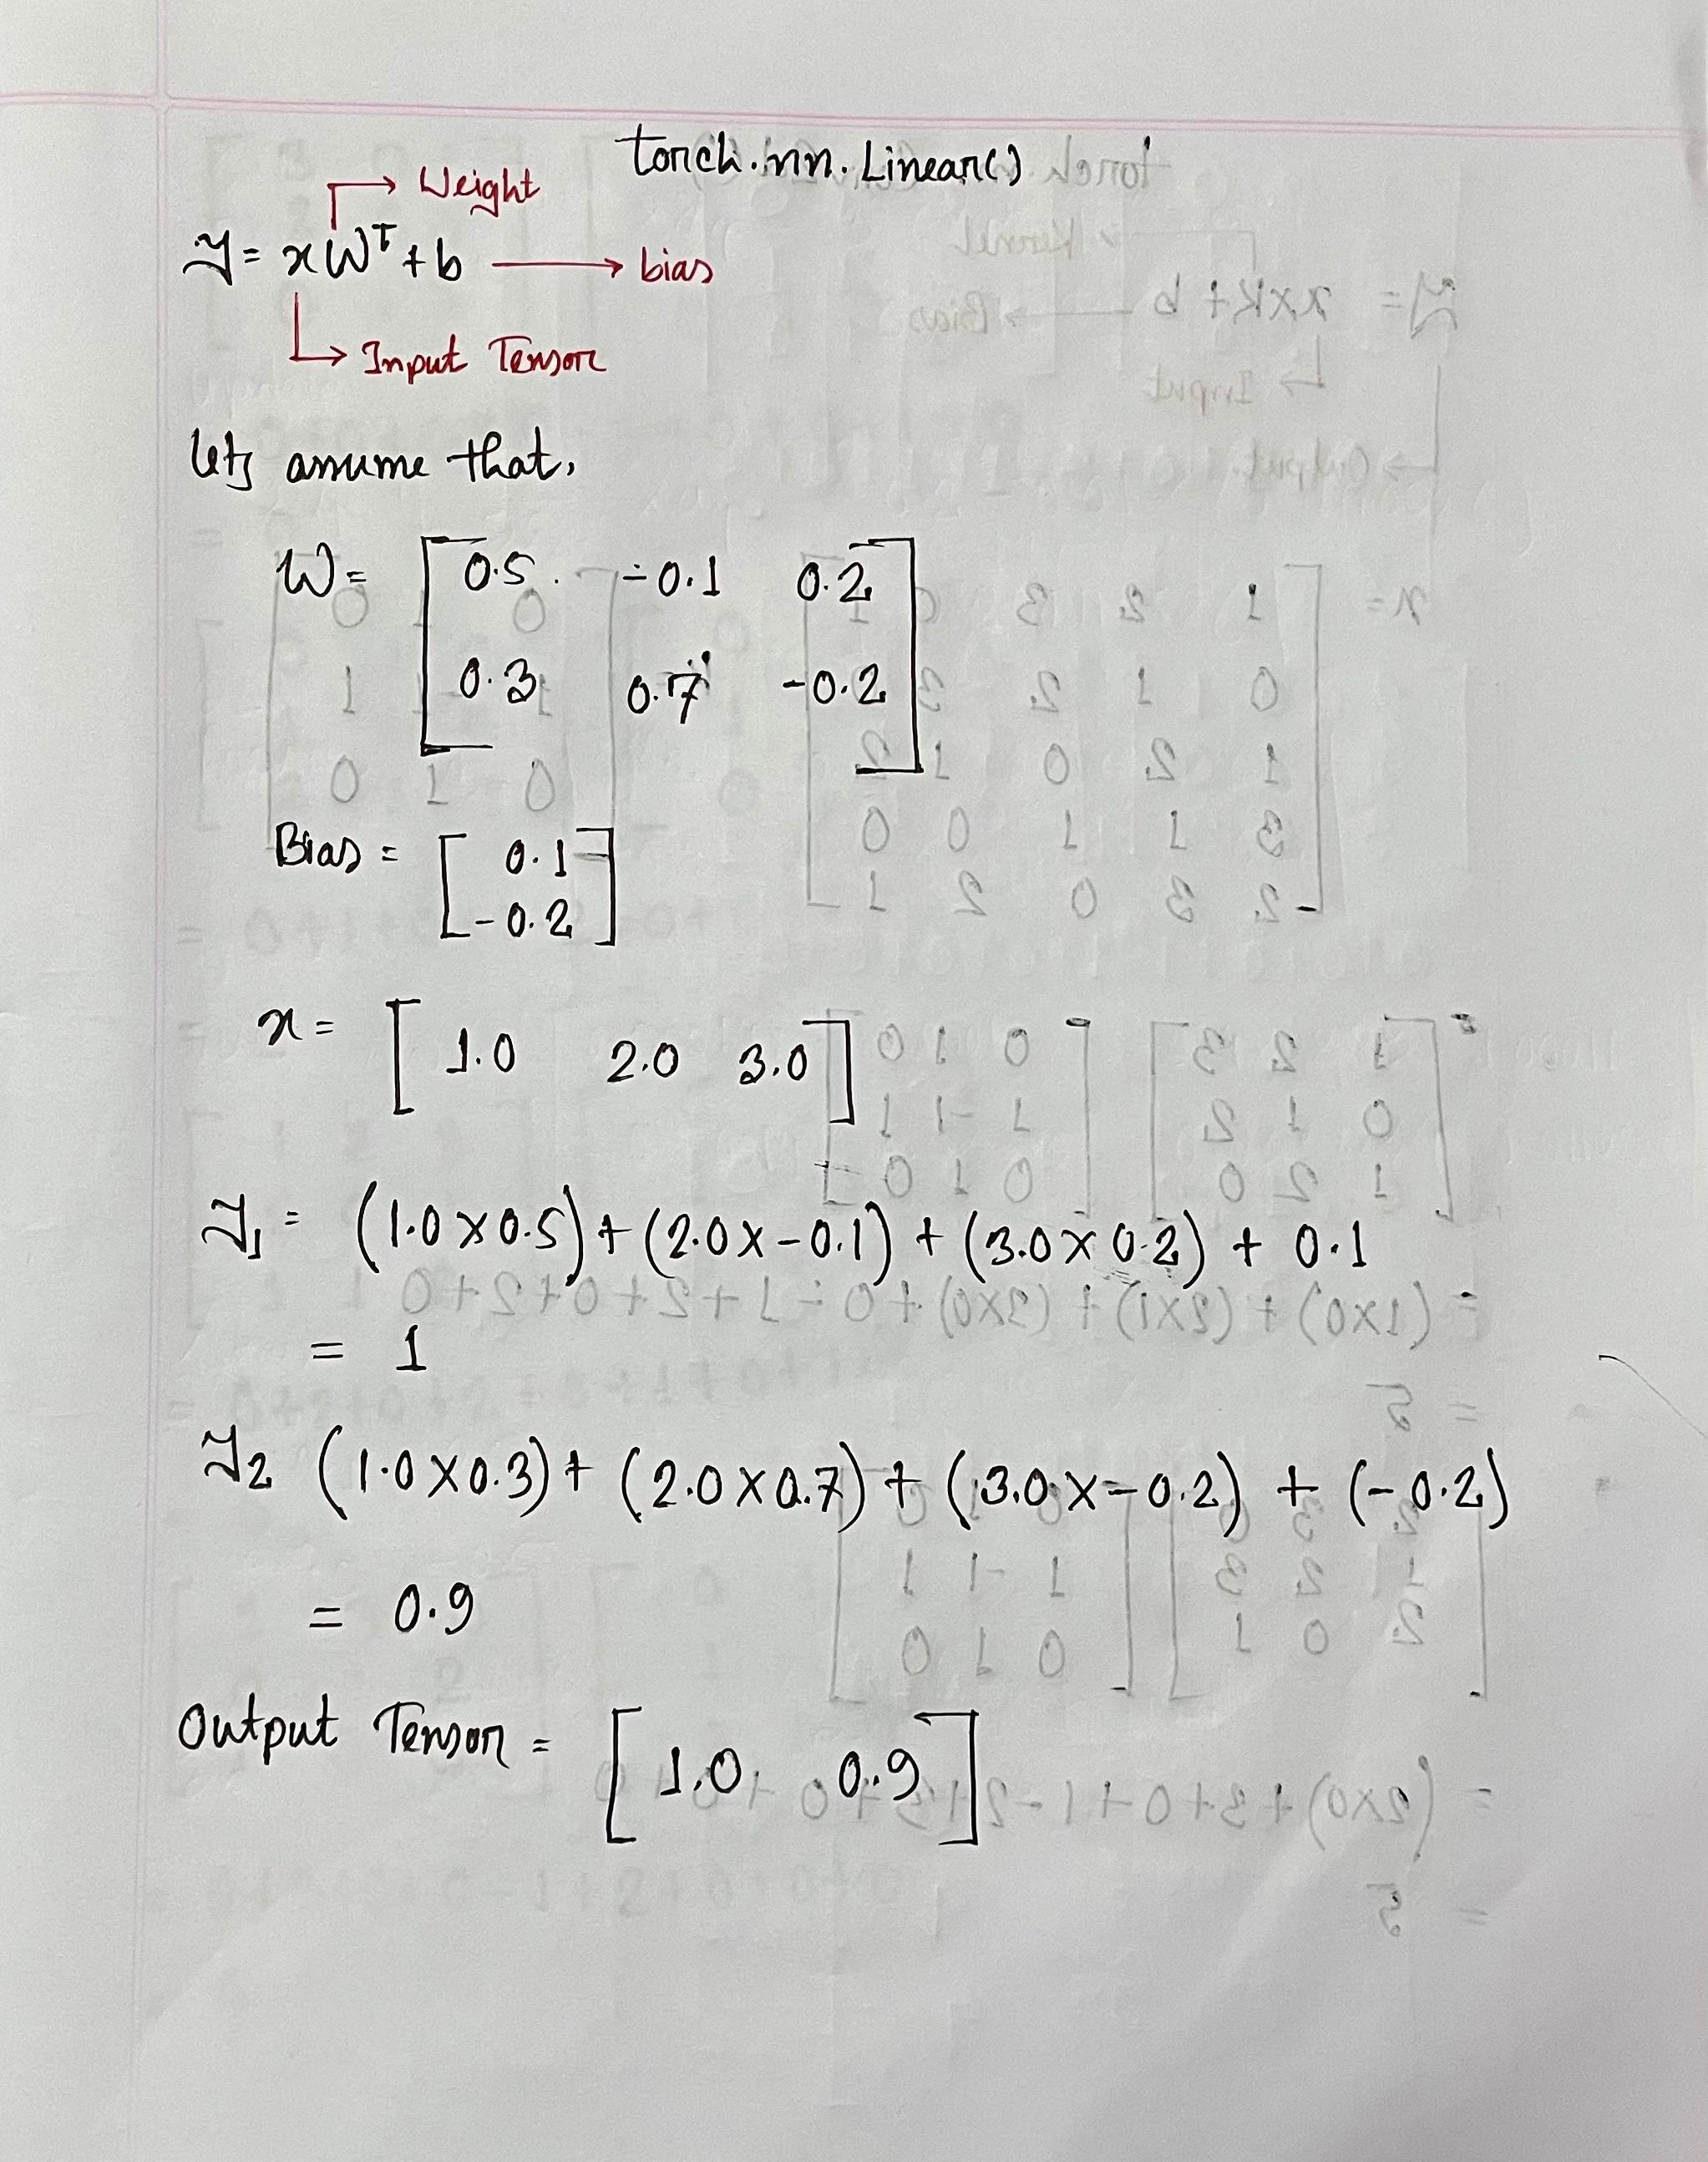 torch.nn.Linear()
Weight
y = xWᵀ + b → bias
Input Tensor
lets assume that,
W = [ 0.5 -0.1 0.2
0.3 0.7 -0.2 ]
Bias = [ 0.1
-0.2 ]
x = [ 1.0 2.0 3.0 ]
y₁ = (1.0 x 0.5) + (2.0 x -0.1) + (3.0 x 0.2) + 0.1
= 1
y₂ (1.0 x 0.3) + (2.0 x 0.7) + (3.0 x -0.2) + (-0.2)
= 0.9
Output Tensor = [ 1.0 0.9 ]